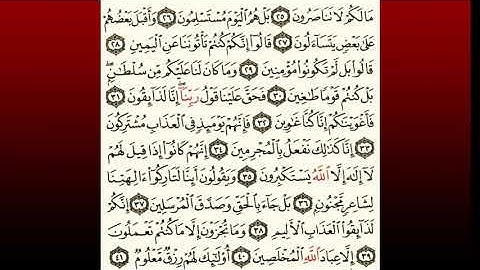 مَا لَكُمْ لَا تَنَاصَرُونَ ٢٥ بَلْ هُمُ ٱلْيَوْمَ مُسْتَسْلِمُونَ ٢٦ وَأَقْبَلَ بَعْضُهُمْ
عَلَىٰ بَعْضٍ يَتَسَآءَلُونَ ٢٧ قَالُوٓا۟ إِنَّكُمْ كُنتُمْ تَأْتُونَنَا عَنِ ٱلْيَمِينِ ٢٨
قَالُوا۟ بَل لَّمْ تَكُونُوا۟ مُؤْمِنِينَ ٢٩ وَمَا كَانَ لَنَا عَلَيْكُم مِّن سُلْطَٰنٍۭ ۖ
بَلْ كُنتُمْ قَوْمًا طَٰغِينَ ٣٠ فَحَقَّ عَلَيْنَا قَوْلُ رَبِّنَآ ۖ إِنَّا لَذَآئِقُونَ ٣١
فَأَغْوَيْنَٰكُمْ إِنَّا كُنَّا غَٰوِينَ ٣٢ فَإِنَّهُمْ يَوْمَئِذٍ فِى ٱلْعَذَابِ مُشْتَرِكُونَ
٣٣ إِنَّا كَذَٰلِكَ نَفْعَلُ بِٱلْمُجْرِمِينَ ٣٤ إِنَّهُمْ كَانُوٓا۟ إِذَا قِيلَ لَهُمْ
لَآ إِلَٰهَ إِلَّا ٱللَّهُ يَسْتَكْبِرُونَ ٣٥ وَيَقُولُونَ أَئِنَّا لَتَارِكُوٓا۟ ءَالِهَتِنَا
لِشَاعِرٍ مَّجْنُونٍۭ ٣٦ بَلْ جَآءَ بِٱلْحَقِّ وَصَدَّقَ ٱلْمُرْسَلِينَ ٣٧ إِنَّكُمْ
لَذَآئِقُوا۟ ٱلْعَذَابِ ٱلْأَلِيمِ ٣٨ وَمَا تُجْزَوْنَ إِلَّا مَا كُنتُمْ تَعْمَلُونَ
٣٩ إِلَّا عِبَادَ ٱللَّهِ ٱلْمُخْلَصِينَ ٤٠ أُو۟لَٰٓئِكَ لَهُمْ رِزْقٌ مَّعْلُومٌ ٤١